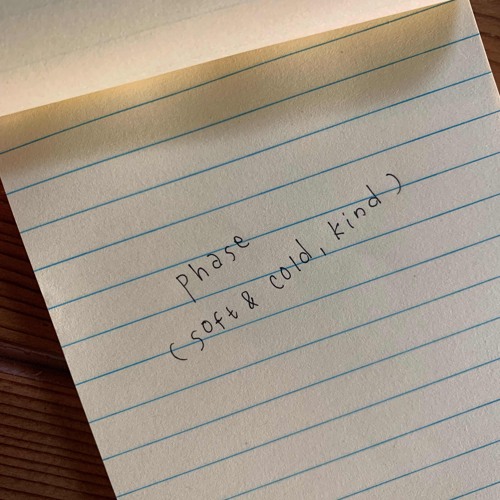 phase
(soft & cold, kind)